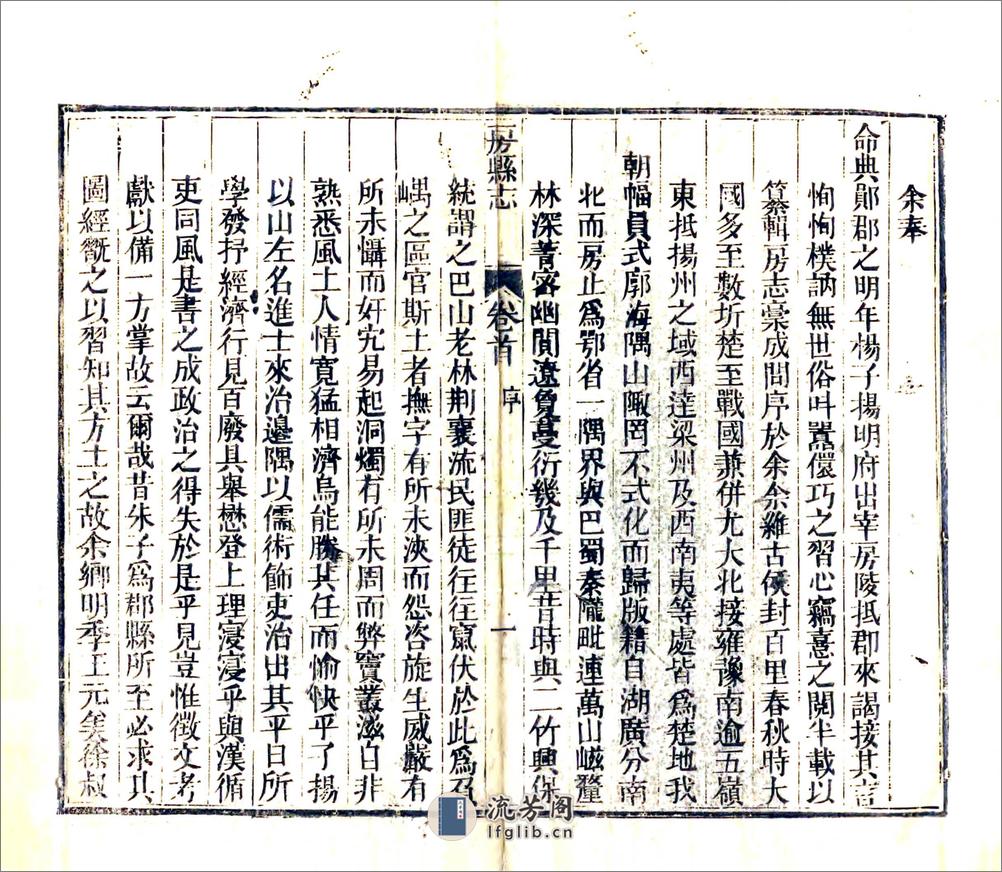 余奉
命典鄖郡之明年楊子揚明府出宰房陵抵郡來謁接其言
恂恂樸訥無世俗叫囂儇巧之習心竊憙之閱半載以
篹輯房志稾成問序於余余維古侯封百里春秋時大
國多至數圻楚至戰國兼併尤大北接雍豫南逾五嶺
東抵揚州之域西達梁州及西南夷等處皆爲楚地我
朝幅員式廓海隅山陬罔不式化而歸版籍自湖廣分南
北而房止爲鄂省一隅界與巴蜀秦隴毗連萬山巉巖
林深菁密幽閒遼敻蔓衍幾及千里昔時與二竹興保
房縣志 卷首 序 一
統謂之巴山老林荆襄流民匪徒往往竄伏於此爲召
嵎之區官斯土者撫字有所未浹而怨咨旋生威嚴有
所未懾而奸宄易起洞燭有所未周而弊竇叢滋自非
熟悉風土人情寬猛相濟烏能勝其任而愉快乎了揚
以山左名進士來治邊隅以儒術飾吏治出其平日所
學發抒經濟行見百廢具舉懋登上理寖寖乎與漢循
吏同風是書之成政治之得失於是乎見豈惟徵文考
獻以備一方掌故云爾哉昔朱子爲郡縣所至必求其
圖經嘅之以習知其方土之故余鄉明季王元美徐叔
流芳阁
lfglib.cn